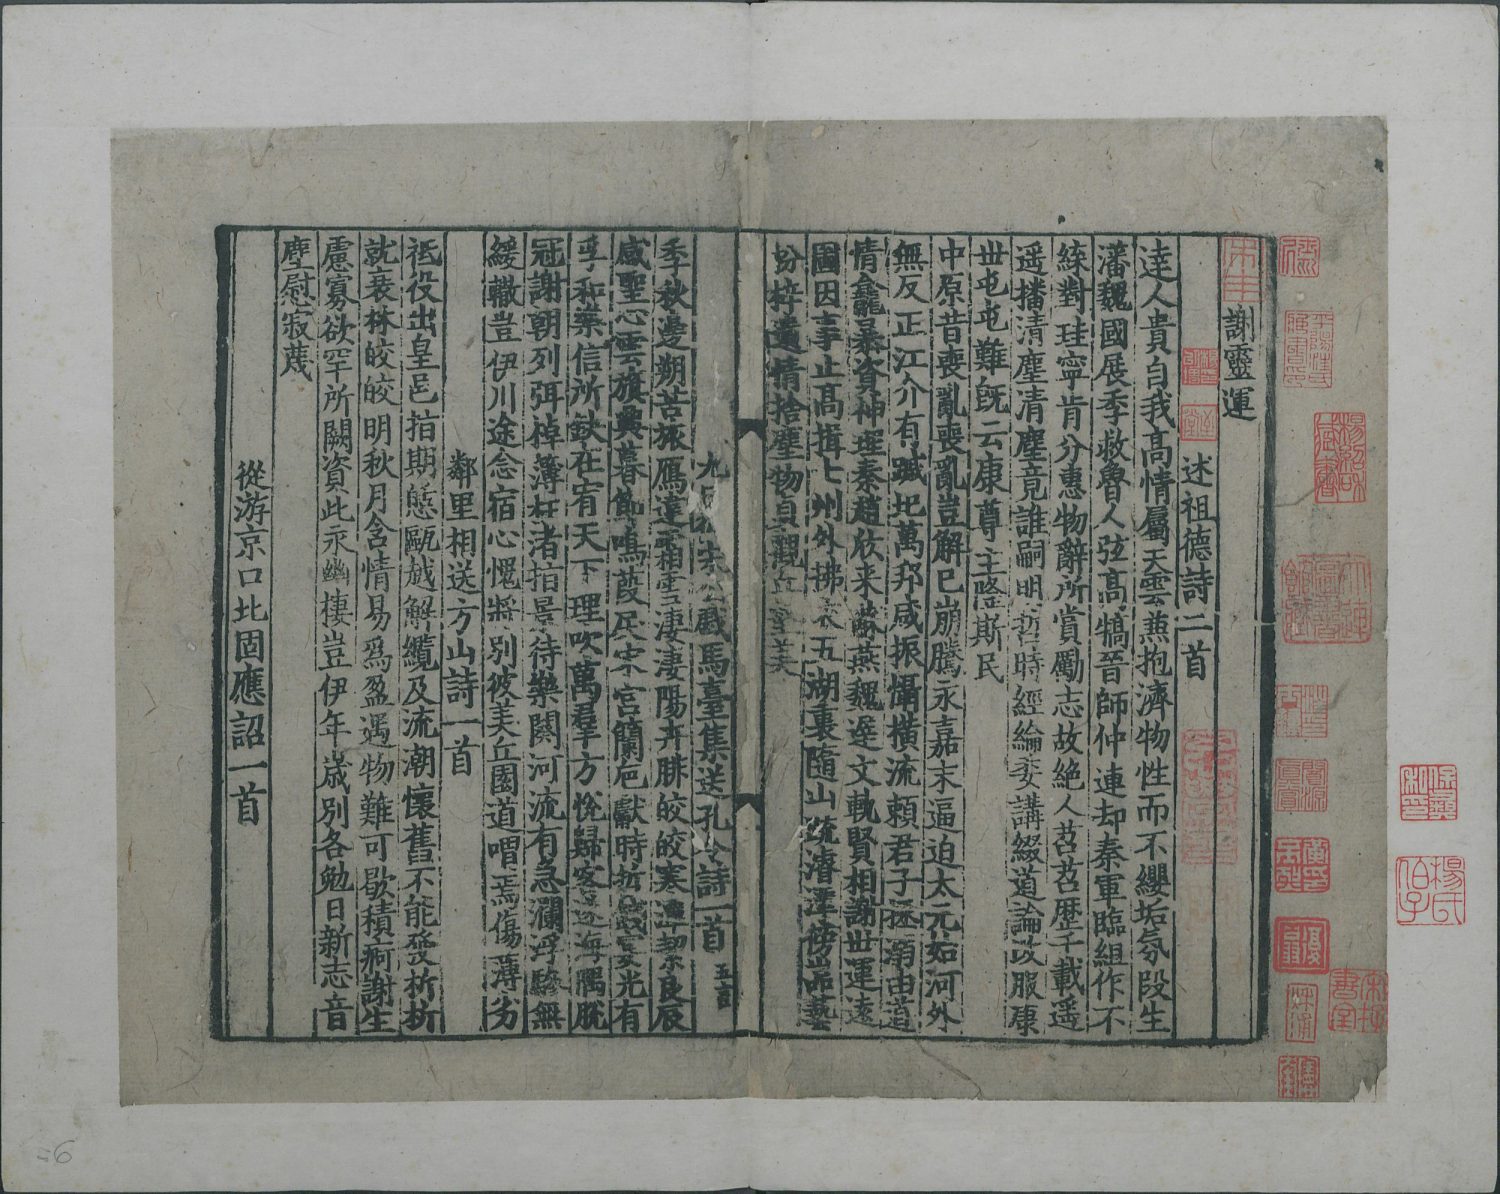 謝靈運
述祖德詩二首
達人貴自我高情屬天雲兼抱濟物性而不纓垢氛段生
藩魏國展季救魯人弦高犒晉師仲連却秦軍臨組作不
緤對珪寧肯分惠物辭所賞勵志故絶人苕苕歷千載遥
遥播清塵清塵竟誰嗣明哲時經綸委講綴道論改服康
世屯屯難旣云康尊主隆斯民
中原昔喪亂喪亂豈解已崩騰永嘉末逼迫太元始河外
無反正江介有蹴圯萬邦咸振懾橫流賴君子拯溺由道
情龕暴資神理秦趙欣来蘇燕魏遲文軌賢相謝世運遠
圖因事止高揖七州外拂衣五湖裏隨山疏濬潭傍嵓藝
枌梓遺情捨塵物貞觀丘壑美
九日從宋公戲馬臺集送孔令詩一首 五言
季秋邊朔苦旅鴈違霜雪淒淒陽卉腓皎皎寒潭絜良辰
感聖心雲旗興暮節鳴葭戾朱宮蘭巵獻時哲餞宴光有
孚和樂信所缺在宥天下理吹萬羣方悅歸客遂海隅脫
冠謝朝列弭棹薄枉渚指景待樂闋河流有急瀾浮驂無
緩轍豈伊川途念宿心愧將別彼美丘園道喟焉傷薄劣
鄰里相送方山詩一首
祗役出皇邑指期憩甌越解纜及流潮懷舊不能發析析
就衰林皎皎明秋月含情易爲盈遇物難可歇積痾謝生
慮寡欲罕所闕資此永幽棲豈伊年歲別各勉日新志音
塵慰寂蔑
從游京口北固應詔一首